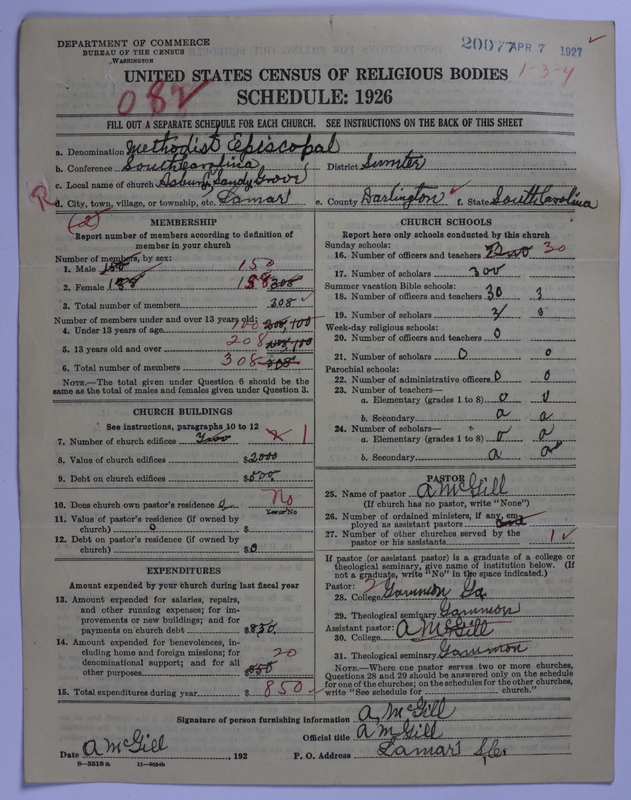 DEPARTMENT OF COMMERCE
BUREAU OF THE CENSUS
WASHINGTON
20077 APR 7 1927
1-3-4
UNITED STATES CENSUS OF RELIGIOUS BODIES
SCHEDULE: 1926
082
FILL OUT A SEPARATE SCHEDULE FOR EACH CHURCH. SEE INSTRUCTIONS ON THE BACK OF THIS SHEET
a. Denomination Methodist Episcopal
b. Conference South Carolina District Sumter
c. Local name of church Asbury, Sandy Grove
R d. City, town, village, or township, etc. Lamar e. County Darlington f. State South Carolina
(2)
MEMBERSHIP
Report number of members according to definition of
member in your church
Number of members, by sex:
1. Male 150 150
2. Female 158 158 308
3. Total number of members 308
Number of members under and over 13 years old:
4. Under 13 years of age 100 100
5. 13 years old and over 208 100
6. Total number of members 308 308
NOTE.—The total given under Question 6 should be the
same as the total of males and females given under Question 3.
CHURCH BUILDINGS
See instructions, paragraphs 10 to 12
7. Number of church edifices Two 2 1
8. Value of church edifices $2000
9. Debt on church edifices $500
10. Does church own pastor's residence No
Yes or No
11. Value of pastor's residence (if owned by
church) 0 $
12. Debt on pastor's residence (if owned by
church) $0
EXPENDITURES
Amount expended by your church during last fiscal year
13. Amount expended for salaries, repairs,
and other running expenses; for im-
provements or new buildings; and for
payments on church debt $830
14. Amount expended for benevolences, in-
cluding home and foreign missions; for
denominational support; and for all
other purposes $850 20
15. Total expenditures during year $850
CHURCH SCHOOLS
Report here only schools conducted by this church
Sunday schools:
16. Number of officers and teachers 30
17. Number of scholars 300
Summer vacation Bible schools:
18. Number of officers and teachers 30 3
19. Number of scholars
Week-day religious schools:
20. Number of officers and teachers 0
21. Number of scholars 0 0
Parochial schools:
22. Number of administrative officers 0 0
23. Number of teachers—
a. Elementary (grades 1 to 8) 0 0
b. Secondary
24. Number of scholars—
a. Elementary (grades 1 to 8)
b. Secondary
PASTOR
25. Name of pastor A McGill
(If church has no pastor, write "None")
26. Number of ordained ministers, if any, em-
ployed as assistant pastors
27. Number of other churches served by the
pastor or his assistants 1
If pastor (or assistant pastor) is a graduate of a college or
theological seminary, give name of institution below. (If
not a graduate, write "No" in the space indicated.)
Pastor: 2
28. College Gammon Ga.
29. Theological seminary Gammon
Assistant pastor: A McGill
30. College
31. Theological seminary Gammon
NOTE.—Where one pastor serves two or more churches,
Questions 28 and 29 should be answered only on the schedule
for one of the churches; on the schedules for the other churches,
write "See schedule for church."
Signature of person furnishing information A, McGill
Official title A McGill
Date A McGill, 192 P. O. Address Lamar S,C.
8-5518 a